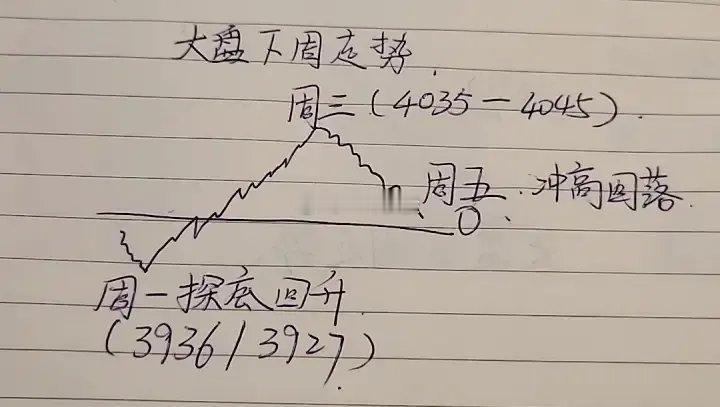 大盘下周走势.
周三(4035-4045).
周五.冲高回落.
0.
周一探底回升
(3936/3927).